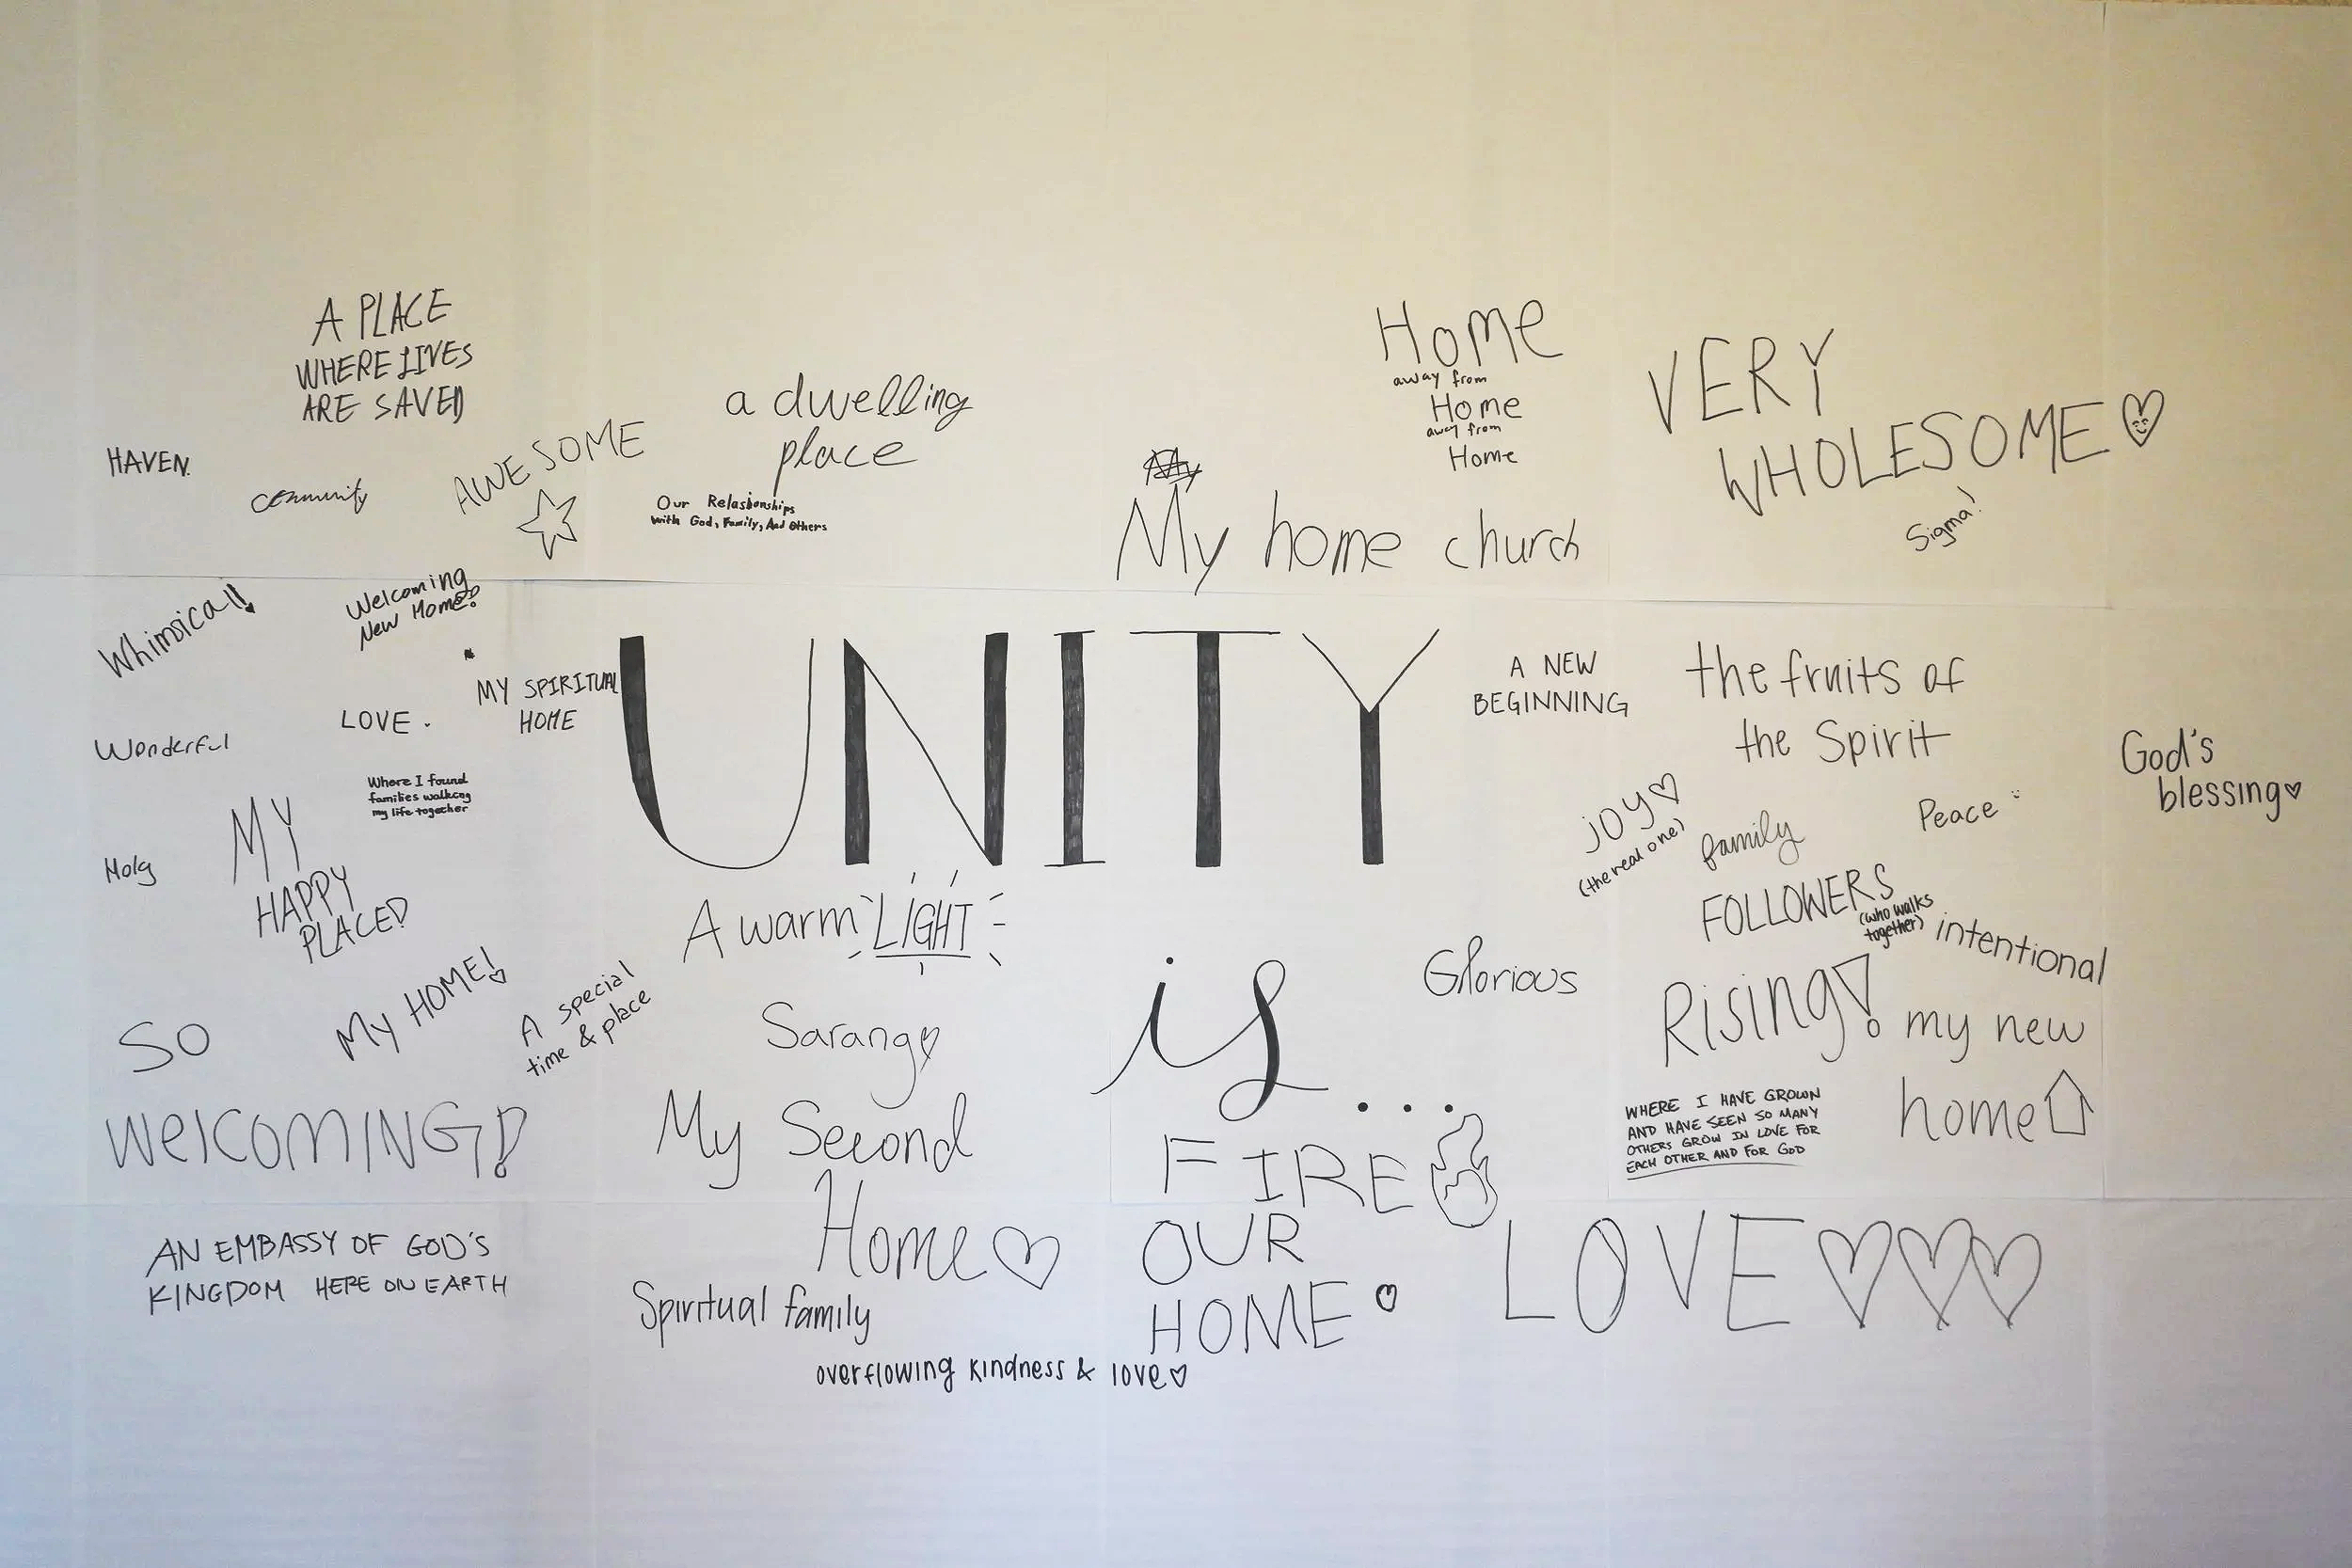 A PLACE
WHERE LIVES
ARE SAVED
HAVEN.
community
AWESOME
a dwelling
place
Our Relasionships
with God, Family, And Others
Home
away from
Home
away from
Home
My
My home church
VERY
WHOLESOME
Sigma!
Whimsical!
Welcoming
New Home!
LOVE.
MY SPIRITUAL
HOME
Wonderful
Where I found
families walking
my life together
Holy
MY
HAPPY
PLACE!
UNITY
is...
A NEW
BEGINNING
the fruits of
the Spirit
God's
blessing
JOY
(the real one)
family
Peace
FOLLOWERS
(who walks
together)
intentional
A warm LIGHT
Glorious
Rising!
my new
home
My HOME!
A special
time & place
SO
WelcoMING!
Sarang
My Second
Home
FIRE
WHERE I HAVE GROWN
AND HAVE SEEN SO MANY
OTHERS GROW IN LOVE FOR
EACH OTHER AND FOR GOD
AN EMBASSY OF GOD'S
KINGDOM HERE ON EARTH
Spiritual family
OUR
HOME
LOVE
overflowing kindness & love